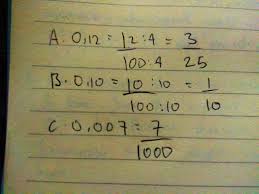 A : 0,12 = 12 : 4 = 3
100 : 4 25
B : 0,10 = 10 : 10 = 1
100 : 10 10
C : 0,007 = 7
1000